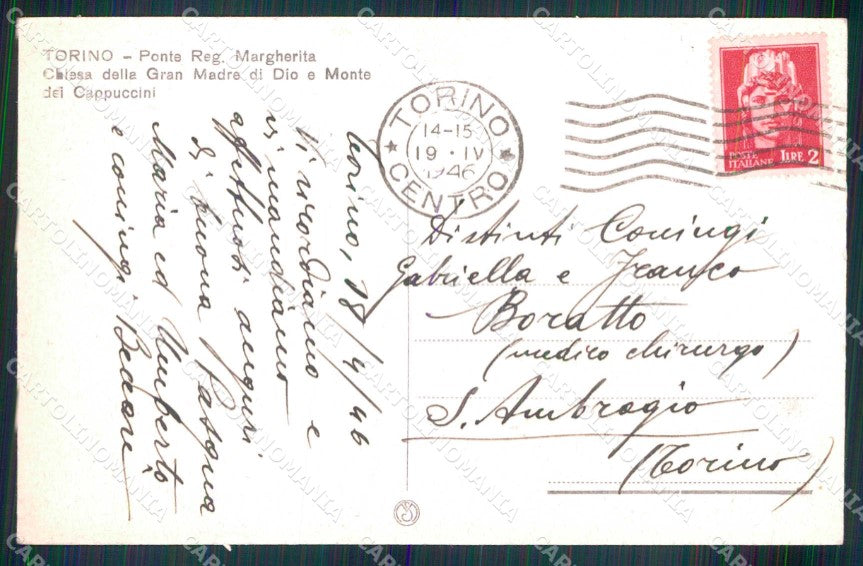 TORINO – Ponte Reg. Margherita
Chiesa della Gran Madre di Dio e Monte
dei Cappuccini
TORINO
14-15
19 · IV
1946
CENTRO
POSTE
ITALIANE
LIRE 2
Torino, 18/4/46
Vi ricordiamo e
vi mandiamo
affettuosi auguri
di buona Pasqua
Maria ed Umberto
e coniugi
Distinti Coniugi
Gabriella e Franco
Boratto
(medico chirurgo)
S. Ambrogio
(Torino)
CARTOLINOMANIA